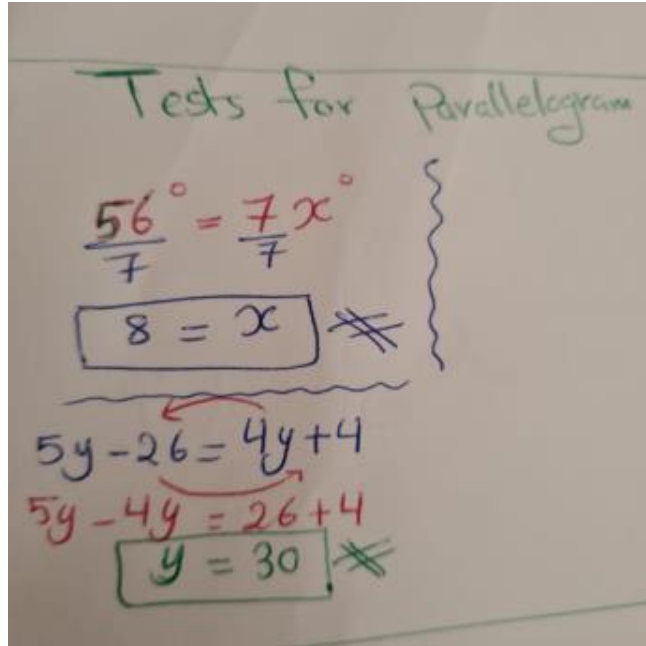 Tests for Parallelogram
56° = 7x°
7 7
8 = x
5y - 26 = 4y + 4
5y - 4y = 26 + 4
y = 30